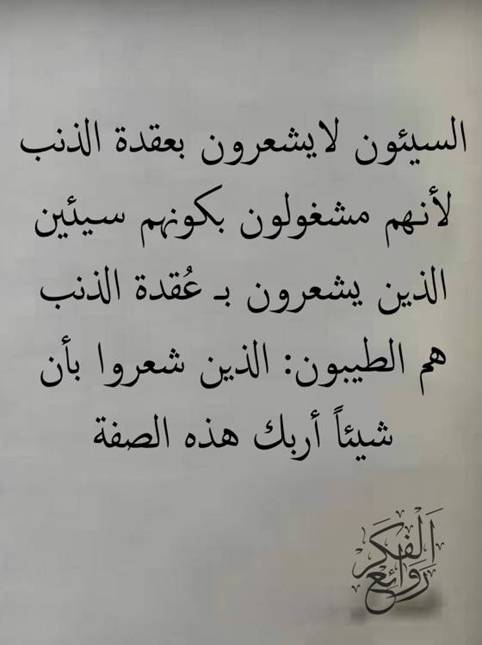 السيئون لايشعرون بعقدة الذنب
لأنهم مشغولون بكونهم سيئين
الذين يشعرون بـ عُقدة الذنب
هم الطيبون: الذين شعروا بأن
شيئاً أربك هذه الصفة
روائع الفكر